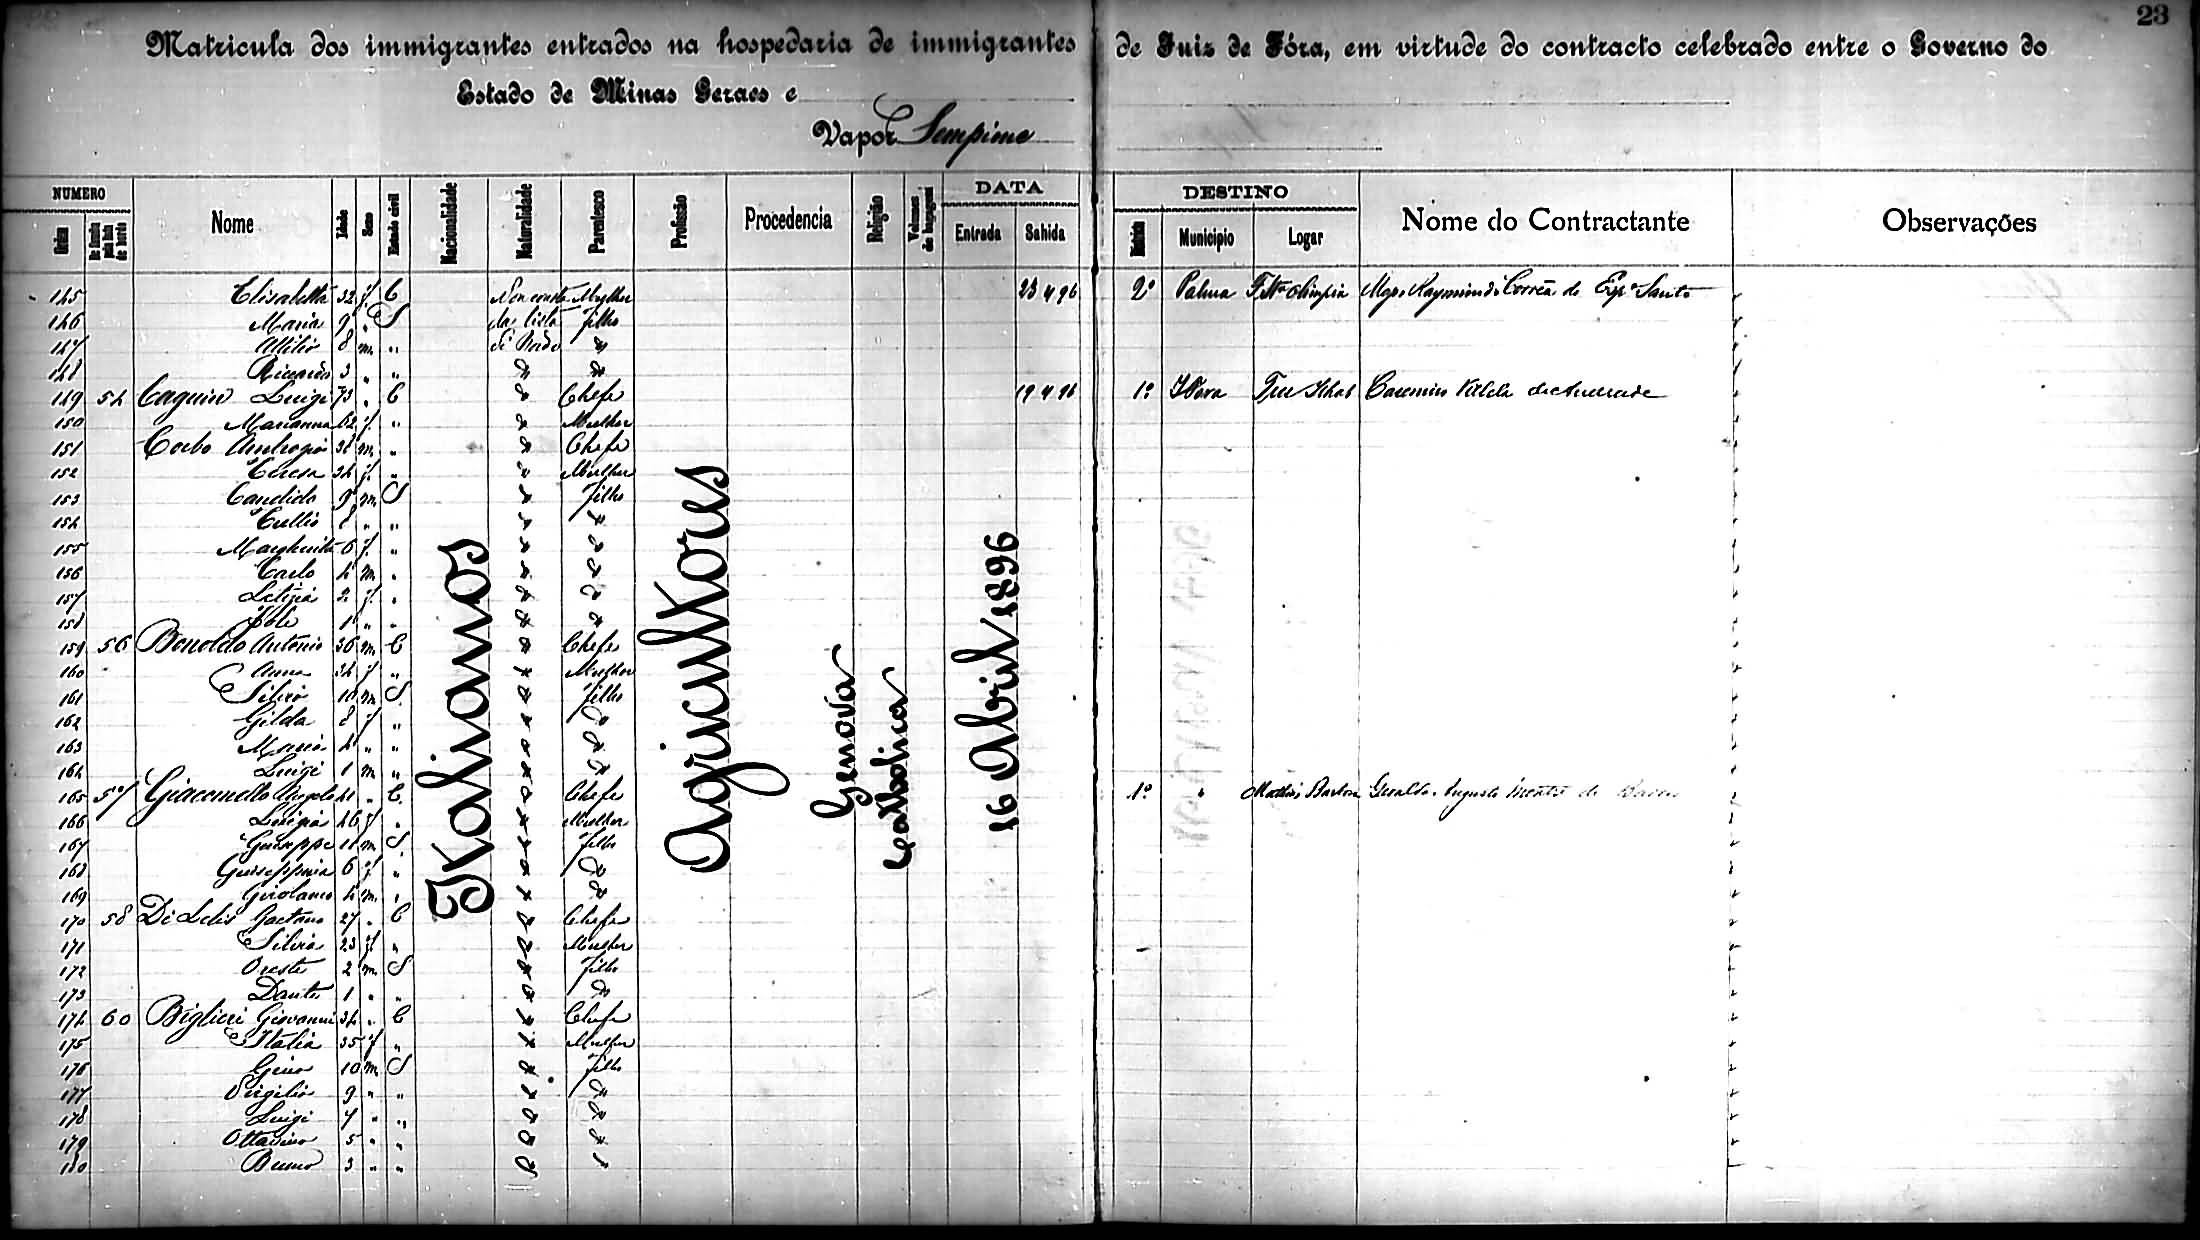 23
Matricula dos immigrantes entrados na hospedaria de immigrantes de Juiz de Fóra, em virtude do contracto celebrado entre o Governo do
Estado de Minas Geraes e
Vapor Sempione
NUMERO Nome Idade Sexo Estado civil Nacionalidade Naturalidade Parentesco Profissão Procedencia Religião Volumes de bagagens DATA DESTINO Nome do Contractante Observações
Ordem Entrada Sahida Municipio Logar
Italianos
Agricultores
Genova
Catholica
16 Abril 1896
145 Elisabetta 32 f. C Non consta Mulher 23 4 96 2ª Palma Olimpia Raymundo Corrêa do Esp.º Santo
146 Maria 9 " S da lista filho
147 Attilio 8 m. " de Bordo "
148 Riccardo 3 " " " "
149 54 Luigi 73 " C " Chefe 19 4 96 1ª de Andrade
150 Marianna 62 f. " " Mulher
151 Corbo Ambrogio 38 m. " " Chefe
152 Teresa 34 f. " " Mulher
153 Candido 9 m. S " filho
154 Tullio 8 " " " "
155 Margherita 6 f. " " "
156 Carlo 4 m. " " "
157 Letizia 2 f. " " "
158 Iole 1 " " " "
159 56 Bonoldo Antonio 36 m. C " Chefe
160 Anna 34 f " " Mulher
161 Silvio 10 m S " filho
162 Gilda 8 f " " "
163 4 " " " "
164 Luigi 1 m " " "
165 57 Giacomello Angelo 41 " C " Chefe 1ª " Mathias Barbosa Augusto
166 Luigia 46 f " " Mulher
167 Giuseppe 11 m S " filho
168 Giuseppina 6 f. " " "
169 Girolamo 4 m. " " "
170 58 De Lelis Gaetano 27 " C " Chefe
171 Silvia 23 f. " " Mulher
172 Oreste 2 m. S " filho
173 Dante 1 " " " "
174 60 Biglieri Giovanni 34 " C " Chefe
175 Italia 35 f " " Mulher
176 Gino 10 m. S " filho
177 Virgilio 9 " " " "
178 Luigi 7 " " " "
179 Ottavino 5 " " " "
180 Bruno 3 " " " "